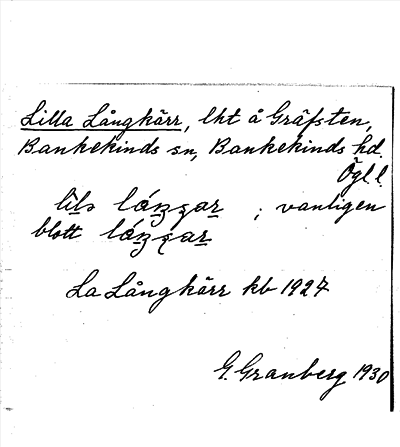 Lilla Långkärr, lht å Gräfsten,
Bankekinds sn, Bankekinds hd.
Ögl l.
; vanligen
blott
La Långkärr kb 1927
G. Granberg 1930